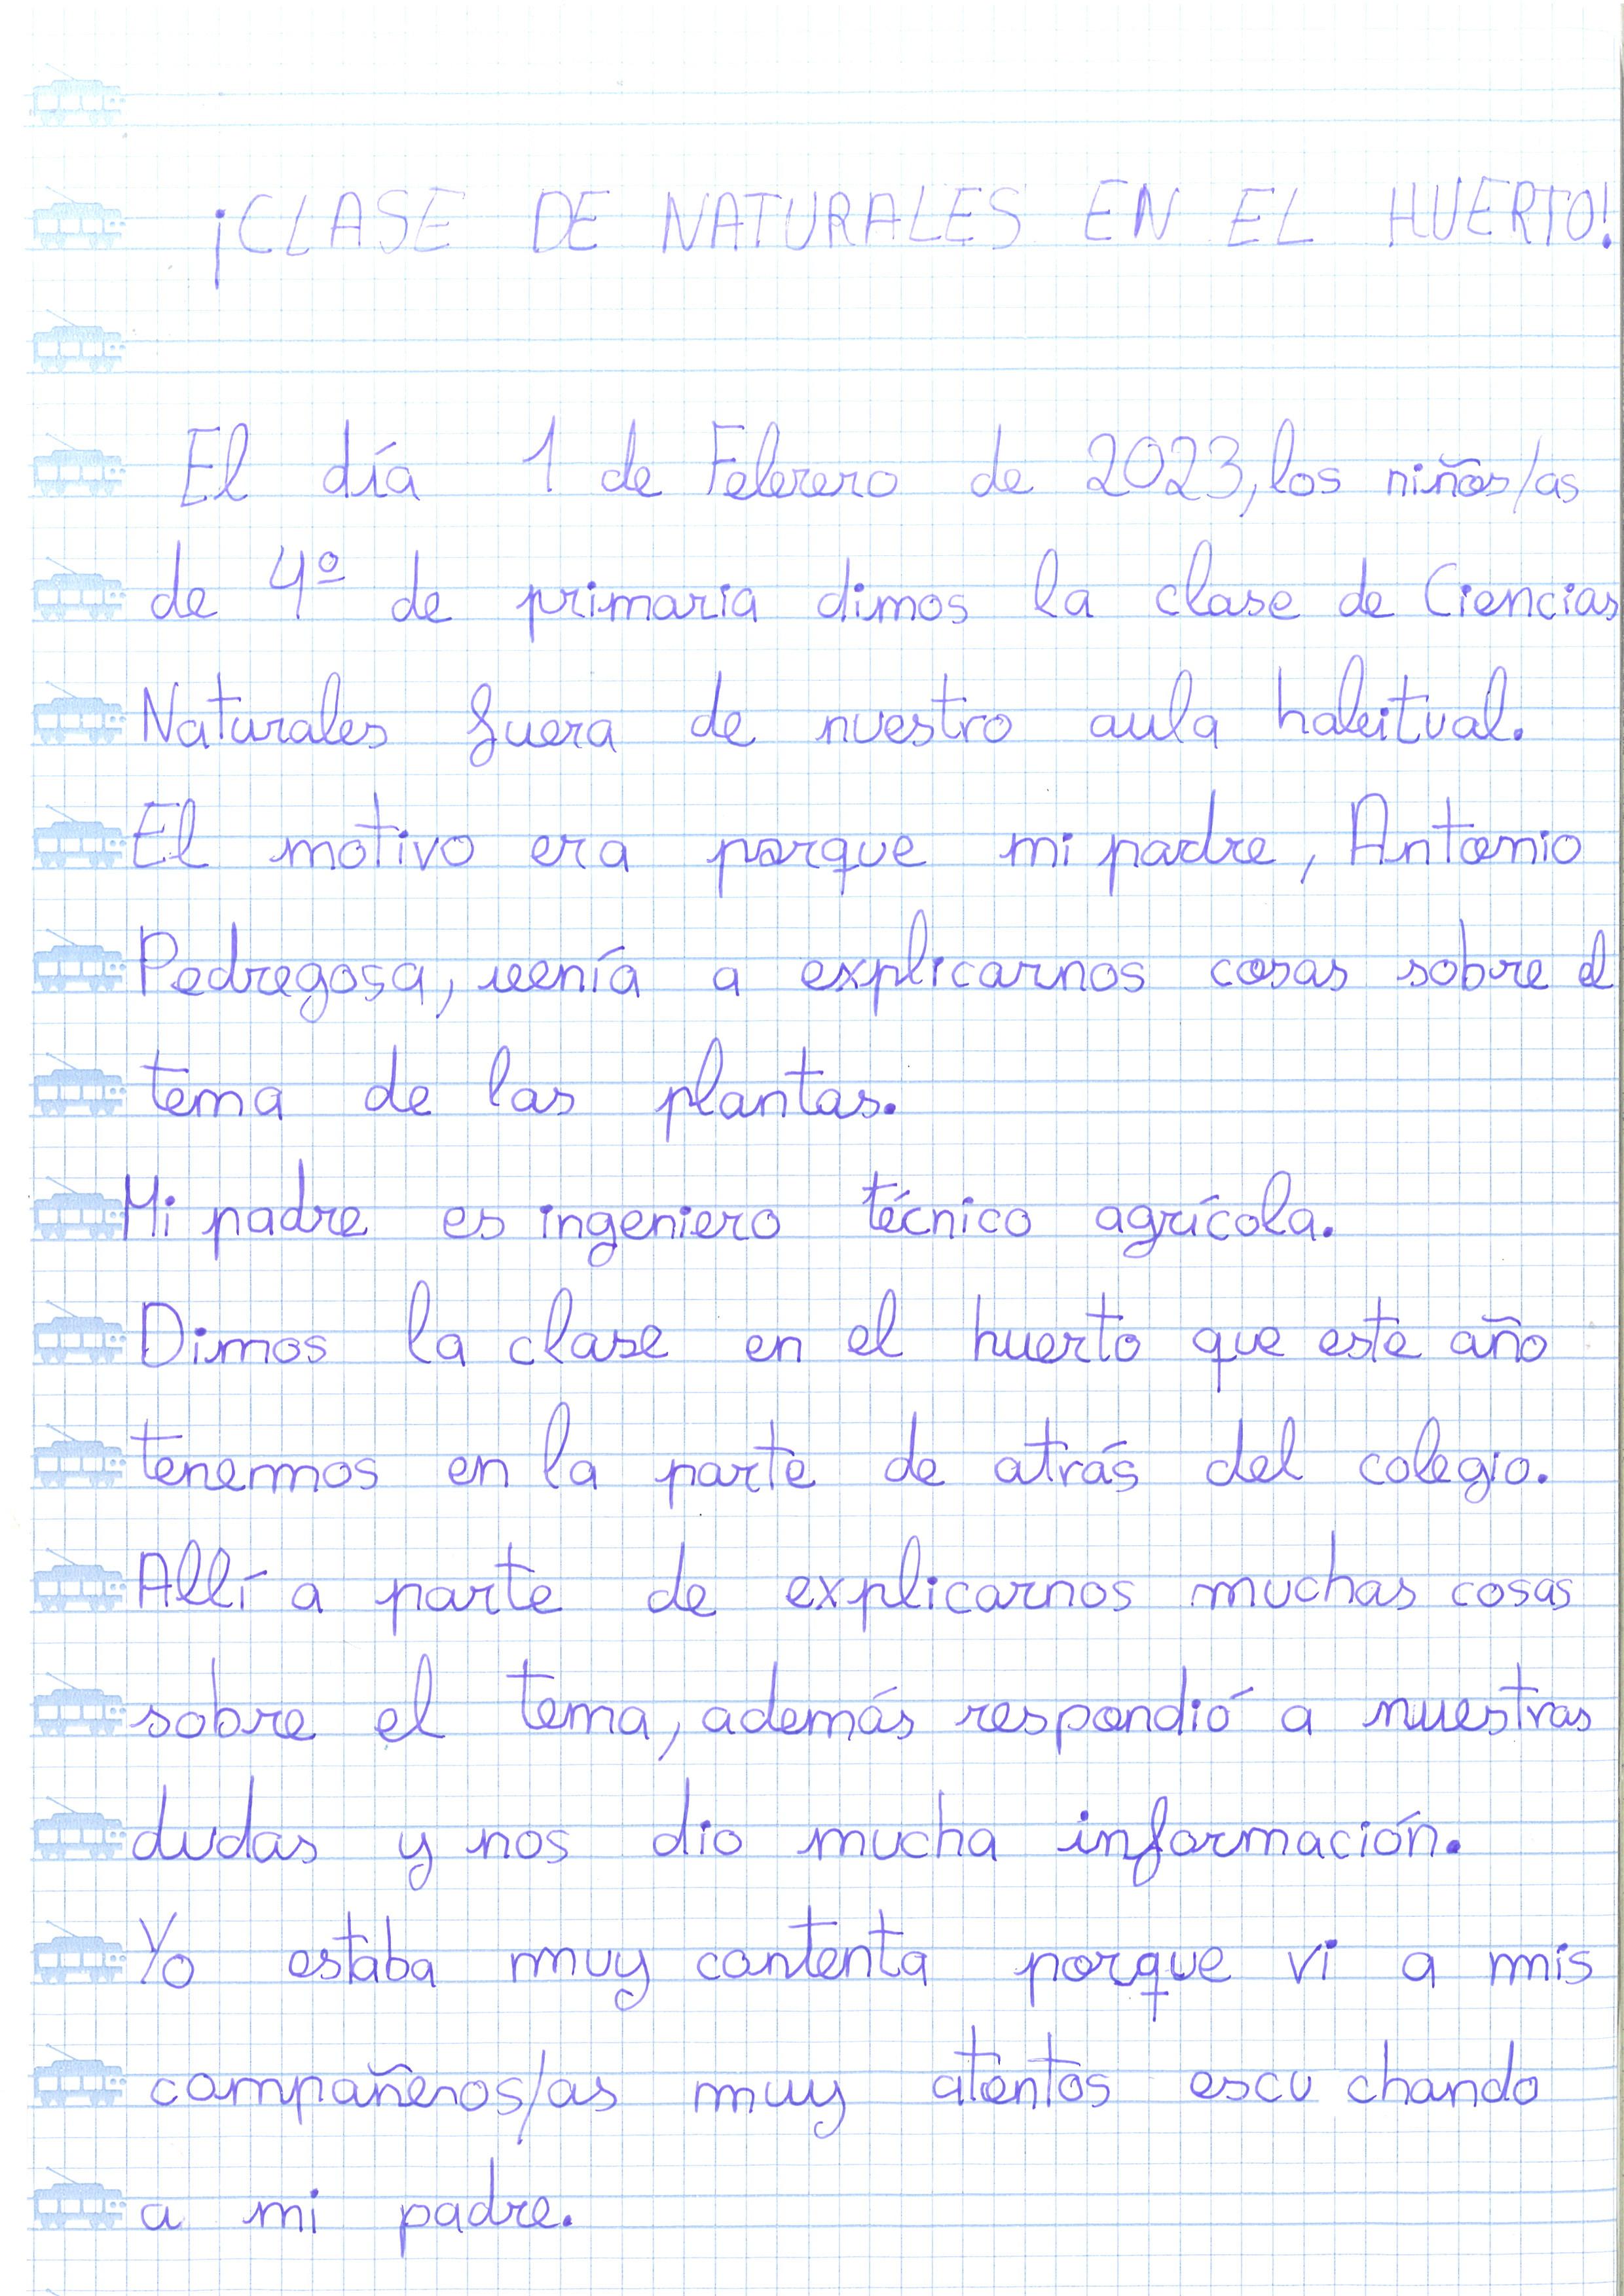 ¡CLASE DE NATURALES EN EL HUERTO!
El día 1 de Febrero de 2023, los niños/as
de 4º de primaria dimos la clase de Ciencias
Naturales fuera de nuestro aula habitual.
El motivo era porque mi padre, Antonio
Pedregosa, venía a explicarnos cosas sobre el
tema de las plantas.
Mi padre es ingeniero técnico agrícola.
Dimos la clase en el huerto que este año
tenemos en la parte de atrás del colegio.
Allí a parte de explicarnos muchas cosas
sobre el tema, además respondió a nuestras
dudas y nos dio mucha información.
Yo estaba muy contenta porque vi a mis
compañeros/as muy atentos escuchando
a mi padre.